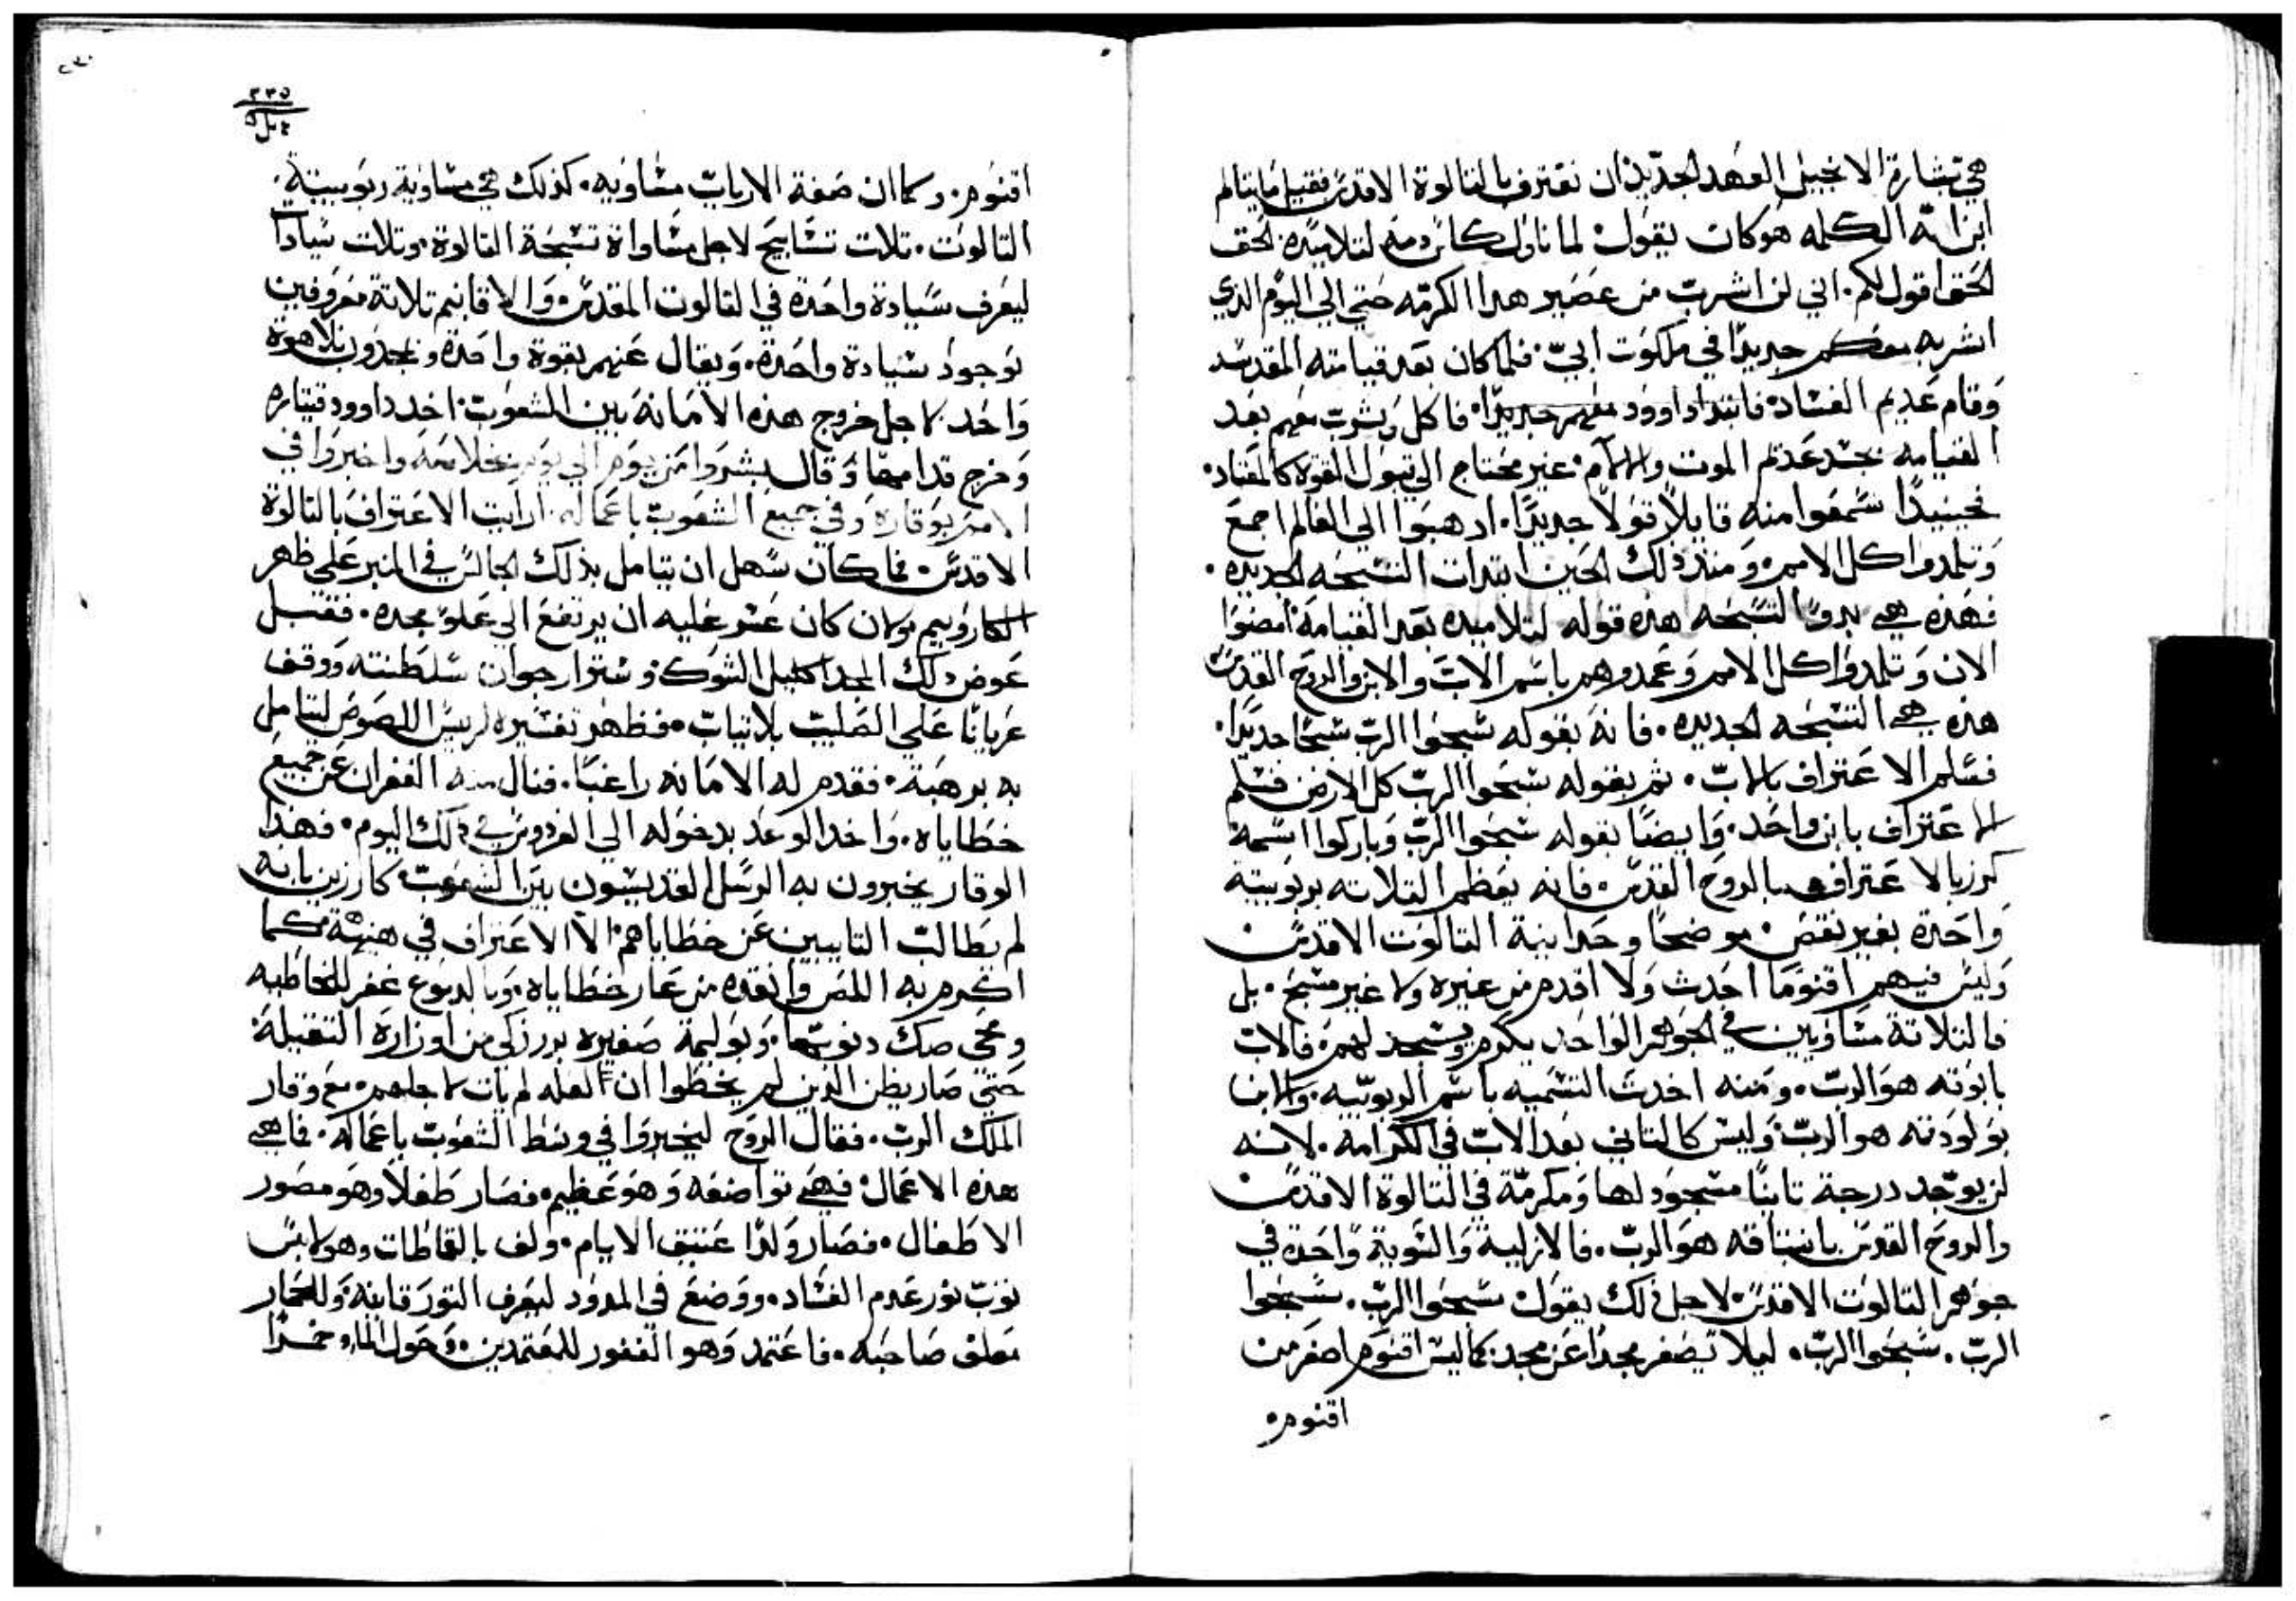 هي بشارة الانجيل العهد الجديد ان نعترف بالتالوة الاقدس فقبل ما يتالم
ابن الله الكلمه هو كان يقول لما ناول كاس دمه لتلاميده الحق
الحق اقول لكم. اني لن اشرب من عصير هدا الكرمه حتي الي اليوم الذي
اشربه معكم جديدًا في ملكوت ابيّ. فلما كان بعد قيامته المقدسه
وقام عديم الفساد. فابتدا داوود معهم جديدًا. فاكل وشرب معهم بعد
القيامه بجسد عديم الموت والالام. غير محتاج الي قبول القوة كالمعتاد.
فحينيدًا سمعوا منه قايلًا قولًا جديدًا. ادهبوا الي العالم اجمع
وتلمدوا كل الامم. ومند دلك الحين ابتدات التسبحه الجديده.
فهذه هي بدو التسبحه هده قوله لتلاميده بعد القيامة امضوا
الان وتلمدوا كل الامم وعمدوهم باسم الاب والابن والروح القدس
هذه هي التسبحه الجديده. فانه بقوله سبحوا الرب سبحًا جديدًا.
فسلم الاعتراف بالاب. تم بقوله سبحوا الرب كل الارض فسلم
الاعتراف بابن واحد. وايضًا بقوله سبحوا الرب وباركوا اسمه
كرز بالاعتراف بالروح القدس. فانه يعظم التلاته بربوبيته
واحدة بغير نقص. موضحًا وحدانية التالوت الاقدس
وليس فيهم اقنومًا احدث ولا اقدم من غيره ولا غير مسبح. بل
فالتلاتة متساويين في الجوهر الواحد يكرم ويسجد لهم. فالاب
بابوته هو الرب. ومنه اخدت التسميه باسم الربوبيه. والابن
بولودته هو الرب. وليس كالتاني بعد الاب في الكرامة. لانه
لن يوجد درجة تانيًا مسجود لها ومكرمة في التالوة الاقدس
والروح القدس بانبتاقه هو الرب. فالازلية والسوية واحدة في
جوهر التالوت الاقدس. لاجل ذلك يقول سبحوا الرب. سبحوا
الرب. سبحوا الرب. ليلا تصغر مجدًا عن مجد. كما ليس اقنوم اصغر من
اقنوم.
٢٣٥
اقنوم. وكما ان صفة الارباب متساويه. كذلك هي مساوية ربوبيتة
التالوت. تلات تسابيح لاجل مساواة تسبحة التالوة. وتلات سيادات
ليعرف سيادة واحدة في التالوت المقدس. والاقانيم تلاتة معروفين
بوجود سيادة واحدة. ويقال عنهم بقوة واحدة ويمجدون بلاهوة
واحد. لاجل خروج هذه الامانة بين الشعوب. اخد داوود قيتاره
وخرج قدامها وقال بشروا من يوم الي يوم بخلاصه واخبروا في
الامم بوقاره وفي جميع الشعوب باعماله. ارايت الاعتراف بالتالوة
الاقدس. فما كان سهل ان يتامل بذلك الجالس في المنبر علي ظهر
الكاروبيم. ولان كان عسر عليه ان يرتفع الي علو مجده. فقبل
عوض دلك المجد اكليل الشوك وستر ارجوان سلطنته ووقف
عريانًا علي الصليب بلا تياب. فظهر تفسيره لريس اللصوص ليتامل
به برهبة. فقدم له الامانه راغبًا. فنال منه الغفران عن جميع
خطاياه. واخد الوعد بدخوله الي الفردوس في دلك اليوم. فهدا
الوقار يخبرون به الرسل القديسون بين الشعوب كارزين بانه
لم يطالب التايبين عن خطاياهم الا الاعتراف في هنيهة. كما
اكرم به اللص وانقده من عار خطاياه. وبالدموع غفر للخاطيه
ومحي صك دنوبها. وبوليمة صغيره برر زكي من اوزاره التقيلة.
حتي صار يظن الدين لم يخطوا ان لعله لم يات لاجلهم. مع وقار
الملك الرب. فقال الروح ليخبروا في وسط الشعوب باعماله. فما هي
هذه الاعمال. فهي تواضعه وهو عظيم. فصار طفلًا وهو مصور
الاطفال. فصار ولدًا عتيق الايام. ولف بالقماطات وهو لابس
توب نور عدم الفساد. ووضع في المدود ليعرف التور قانيه وللحمار
معلف صاحبه. فاعتمد وهو الغفور للمعتمدين. وحول الماء خمرًا